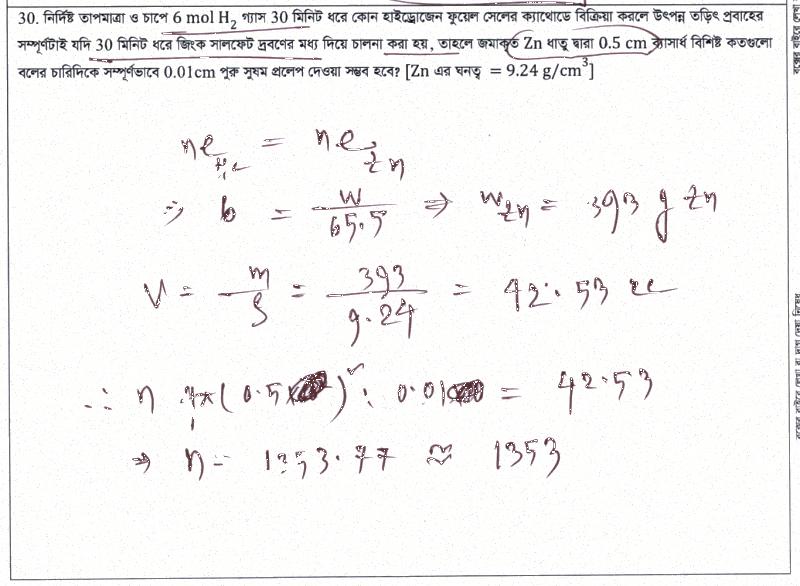 30. নির্দিষ্ট তাপমাত্রা ও চাপে 6 mol H₂ গ্যাস 30 মিনিট ধরে কোন হাইড্রোজেন ফুয়েল সেলের ক্যাথোডে বিক্রিয়া করলে উৎপন্ন তড়িৎ প্রবাহের
সম্পূর্ণটাই যদি 30 মিনিট ধরে জিংক সালফেট দ্রবণের মধ্য দিয়ে চালনা করা হয়, তাহলে জমাকৃত Zn ধাতু দ্বারা 0.5 cm ব্যাসার্ধ বিশিষ্ট কতগুলো
বলের চারিদিকে সম্পূর্ণভাবে 0.01cm পুরু সুষম প্রলেপ দেওয়া সম্ভব হবে? [Zn এর ঘনত্ব = 9.24 g/cm³]
ne H₂ = ne Zn
⇒ 6 = W/65.5 ⇒ W Zn = 393 g Zn
V = m/ρ = 393/9.24 = 42.53 cc
∴ n 4π(0.5)² × 0.01 = 42.53
⇒ n = 1353.77 ≅ 1353